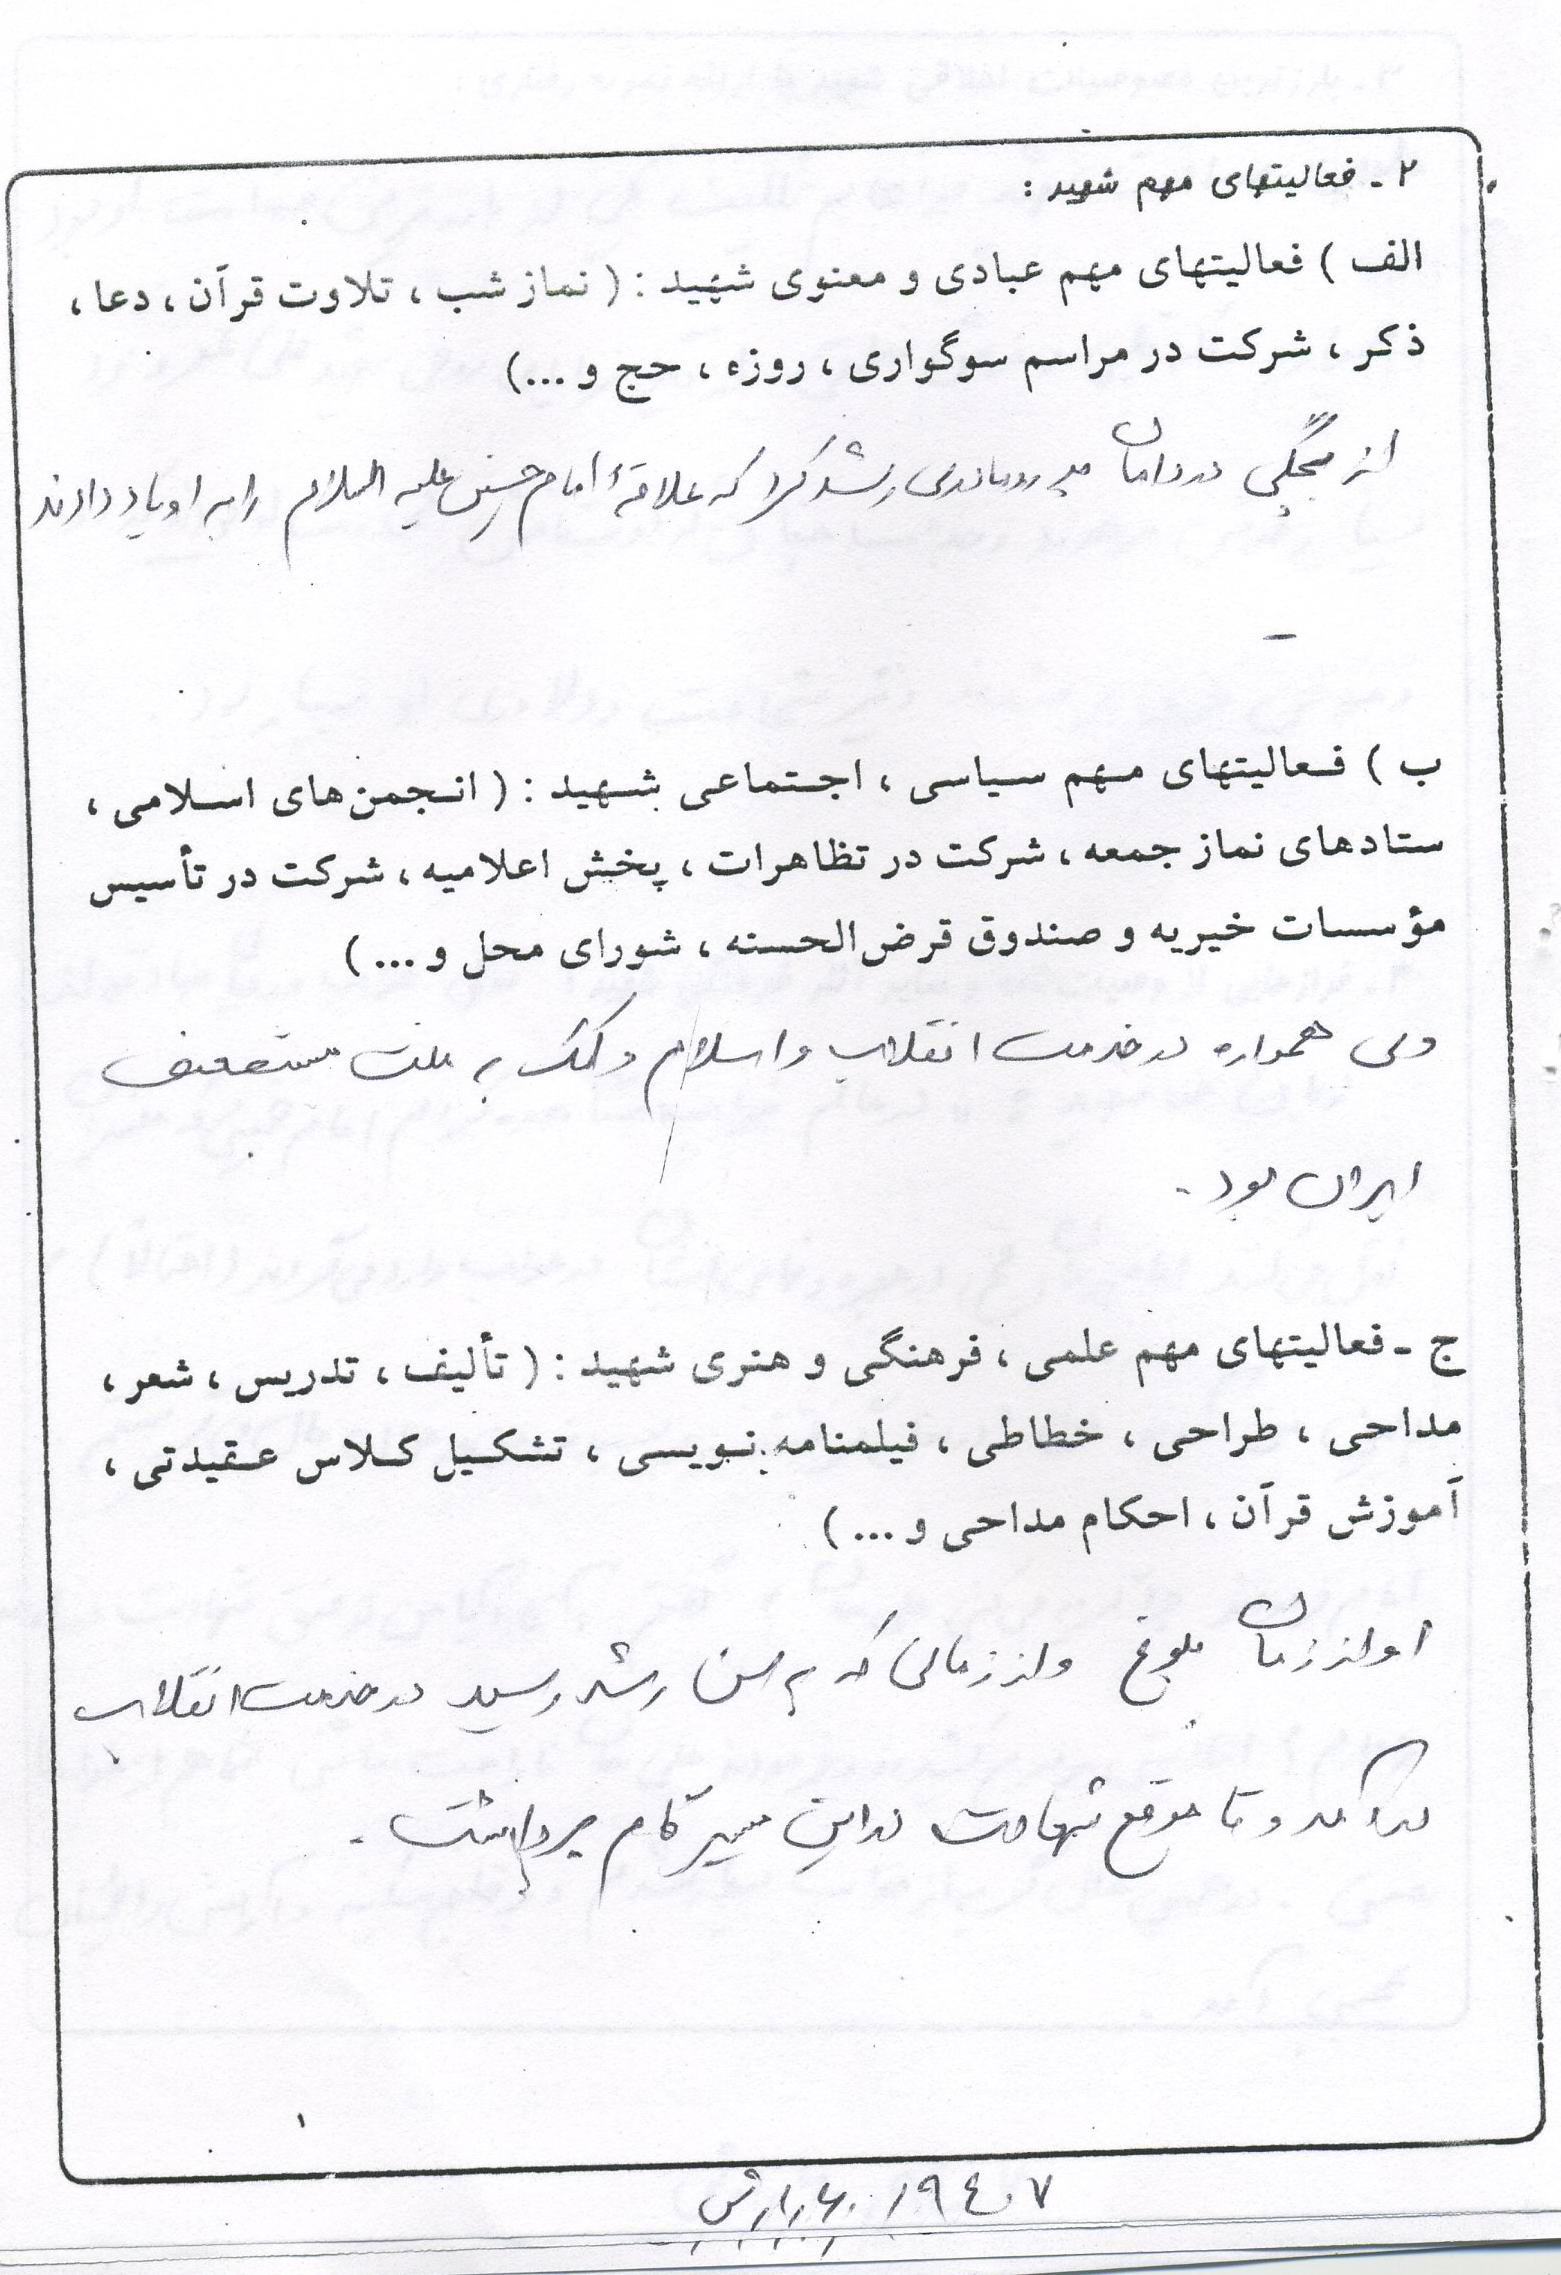 ۲ ـ فعالیتهای مهم شهید :
الف ) فعالیتهای مهم عبادی و معنوی شهید : ( نماز شب ، تلاوت قرآن ، دعا ،
ذکر ، شرکت در مراسم سوگواری ، روزه ، حج و ...)
از بچگی در دامان پدر و مادری رشد کرد که علاقهٔ امام حسین علیه السلام را به او یاد دادند
ب ) فعالیتهای مهم سیاسی ، اجتماعی شهید : ( انجمن‌های اسلامی ،
ستادهای نماز جمعه ، شرکت در تظاهرات ، پخش اعلامیه ، شرکت در تأسیس
مؤسسات خیریه و صندوق قرض‌الحسنه ، شورای محل و ... )
وی همواره در خدمت انقلاب و اسلام و کمک به ملت مستضعف
ایران بود .
ج ـ فعالیتهای مهم علمی ، فرهنگی و هنری شهید : ( تألیف ، تدریس ، شعر ،
مداحی ، طراحی ، خطاطی ، فیلمنامه نویسی ، تشکیل کلاس عقیدتی ،
آموزش قرآن ، احکام مداحی و ... )
او از زمان بلوغ و از زمانی که به سن رشد رسید در خدمت انقلاب
درآمد و تا موقع شهادت در این مسیر گام برداشت .
۱۹۴۰۷